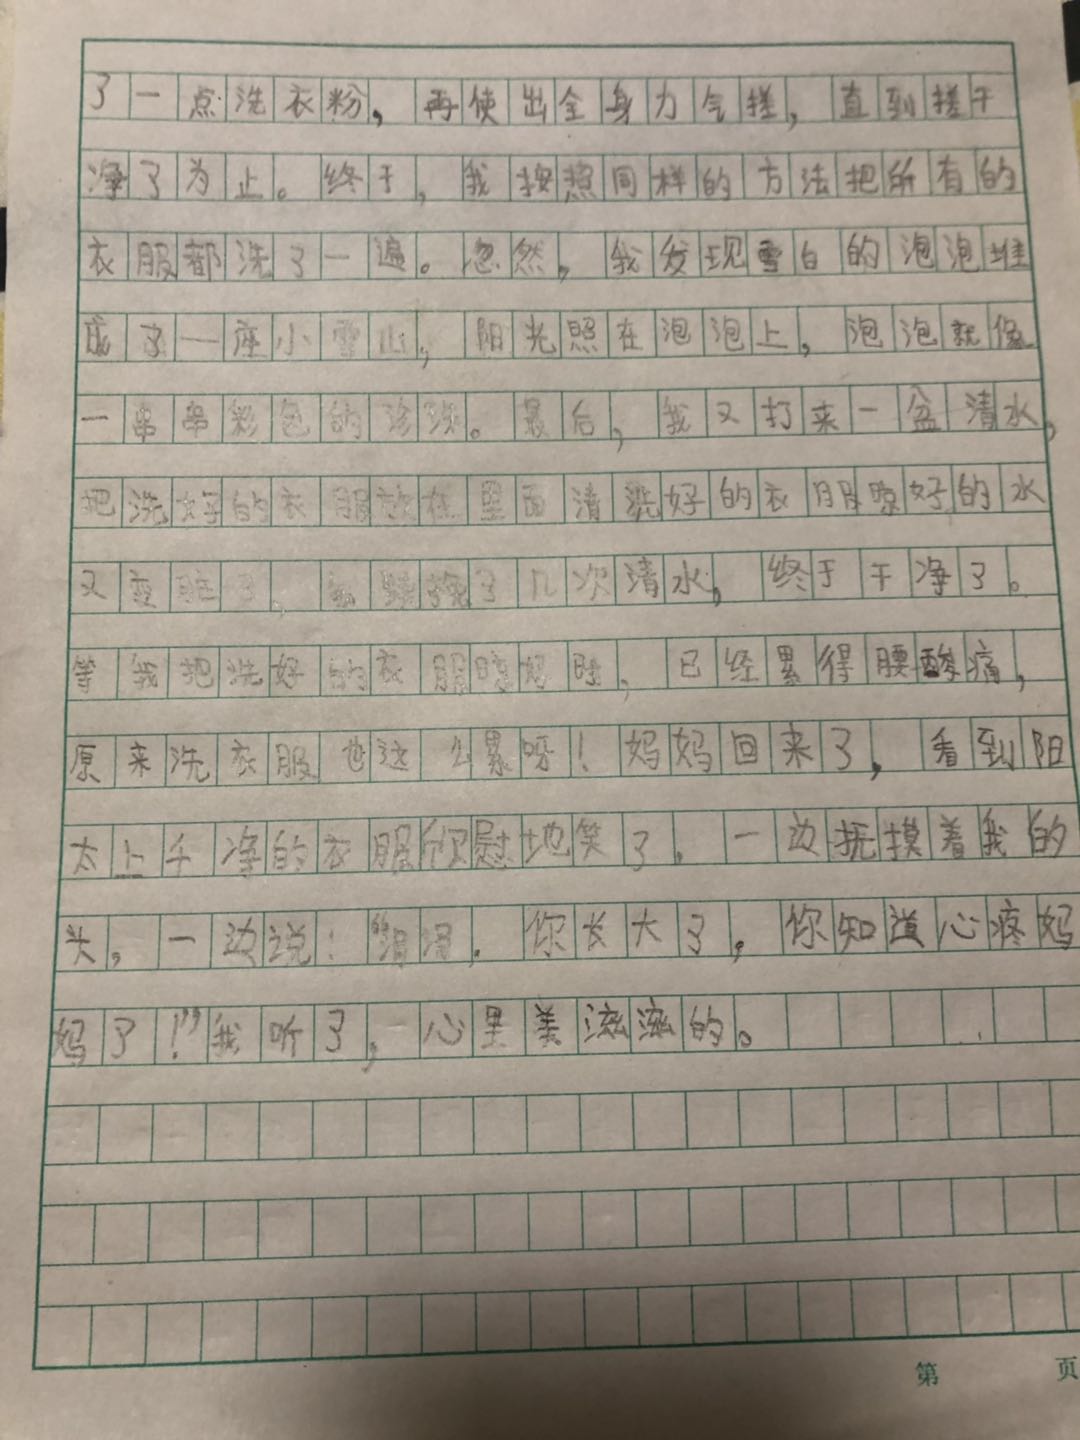 了一点洗衣粉，再使出全身力气搓，直到搓干
净了为止。终于，我按照同样的方法把所有的
衣服都洗了一遍。忽然，我发现雪白的泡泡堆
成了一座小雪山，阳光照在泡泡上，泡泡就像
一串串彩色的珍珠。最后，我又打来一盆清水，
把洗好的衣服放在里面清洗好的衣服晾好的水
又变脏了，换了几次清水，终于干净了。
等我把洗好的衣服晾好时，已经累得腰酸痛，
原来洗衣服也这么累呀！妈妈回来了，看到阳
太上干净的衣服欣慰地笑了，一边抚摸着我的
头，一边说：“，你长大了，你知道心疼妈
妈了！”我听了，心里美滋滋的。
第 页